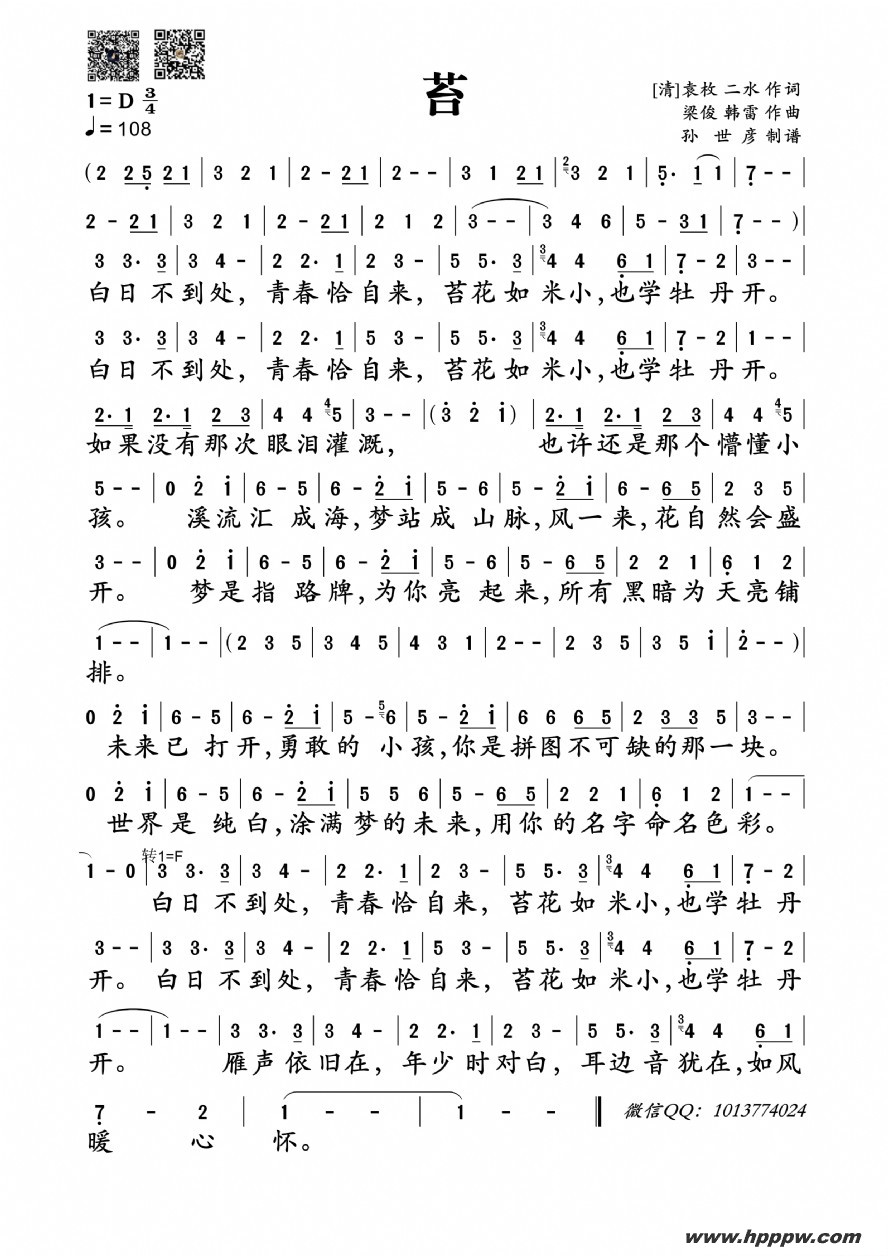 苔
[清]袁枚 二水 作词
梁俊 韩雷 作曲
孙 世 彦 制谱
1=D 3/4
♩=108
( 2 2 5 2 1 | 3 2 1 | 2 - 2 1 | 2 - - | 3 1 2 1 | 2 3 2 1 | 5· 1 1 | 7 - - |
2 - 2 1 | 3 2 1 | 2 - 2 1 | 2 1 2 | 3 - - | 3 4 6 | 5 - 3 1 | 7 - - )|
3 3· 3 | 3 4 - | 2 2· 1 | 2 3 - | 5 5· 3 | 3 4 4 6 1 | 7 - 2 | 3 - - |
白日 不到处, 青春恰自来, 苔花如米小,也学牡 丹开。
3 3· 3 | 3 4 - | 2 2· 1 | 2 3 - | 5 5· 3 | 3 4 4 6 1 | 7 - 2 | 1 - - |
白日 不到处, 青春恰自来, 苔花如米小,也学牡 丹开。
2· 1 2· 1 2 3 | 4 4 4 5 | 3 - - | ( 3 2 1 ) | 2· 1 2· 1 2 3 | 4 4 4 5 |
如果没有那次眼泪灌溉, 也许还是那个懵懂小
5 - - | 0 2 1 | 6 - 5 | 6 - 2 1 | 5 - 6 | 5 - 2 1 | 6 - 5 | 6 6 5 | 2 3 5 |
孩。 溪流汇 成海,梦站成 山脉,风一来,花自然会盛
3 - - | 0 2 1 | 6 - 5 | 6 - 2 1 | 5 - 6 | 5 - 6 5 | 2 2 1 | 2 2 1 | 6 1 2 |
开。 梦是指 路牌,为你亮 起来,所有黑暗为天亮铺
1 - - | 1 - - | ( 2 3 5 | 3 4 5 | 4 3 1 | 2 - - | 2 3 5 | 3 5 1 | 2 - - )|
排。
0 2 1 | 6 - 5 | 6 - 2 1 | 5 - 5 6 | 5 - 2 1 | 6 6 6 5 | 2 3 3 5 | 3 - - |
未来已 打开,勇敢的 小孩,你是拼图不可缺的那一块。
0 2 1 | 6 - 5 | 6 - 2 1 | 5 5 6 | 5 - 6 5 | 2 2 1 | 6 1 2 | 1 - - |
世界是 纯白,涂满梦的未来,用你的名字命名色彩。
转1=F
1 - 0 | 3 3· 3 | 3 4 - | 2 2· 1 | 2 3 - | 5 5· 3 | 3 4 4 6 1 | 7 - 2 |
白日 不到处, 青春恰自来, 苔花如米小,也学牡 丹
3 - - | 3 3· 3 | 3 4 - | 2 2· 1 | 2 3 - | 5 5· 3 | 3 4 4 6 1 | 7 - 2 |
开。 白日 不到处, 青春恰自来, 苔花如米小,也学牡 丹
1 - - | 1 - - | 3 3· 3 | 3 4 - | 2 2· 1 | 2 3 - | 5 5· 3 | 3 4 4 6 1 |
开。 雁声依旧在, 年少时对白, 耳边音犹在,如风
7 - 2 | 1 - - | 1 - - ‖ 微信QQ：1013774024
暖 心 怀。
www.hpppw.com